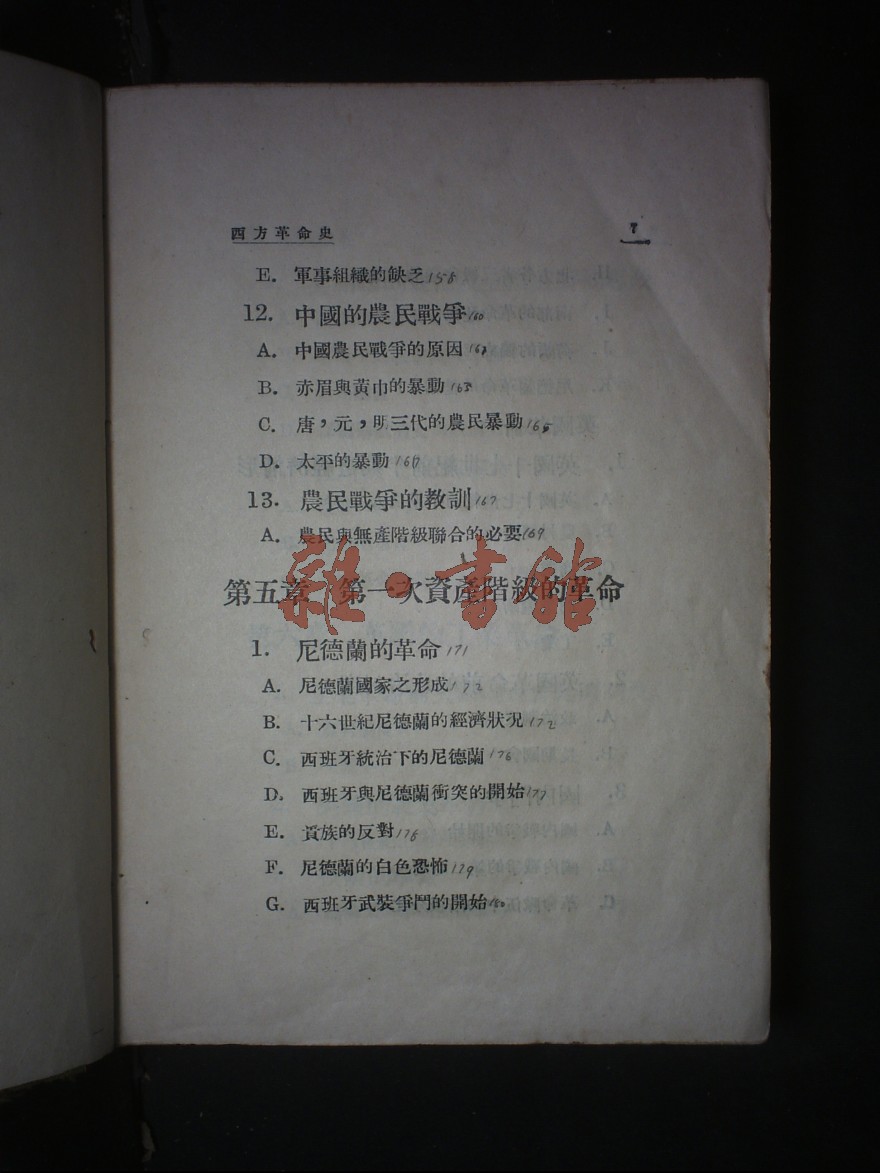 西方革命史 7
E. 軍事組織的缺乏 158
12. 中國的農民戰爭 160
A. 中國農民戰爭的原因 162
B. 赤眉與黃巾的暴動 163
C. 唐，元，明三代的農民暴動 165
D. 太平的暴動 160
13. 農民戰爭的教訓 167
A. 農民與無產階級聯合的必要 169
第五章 第一次資產階級的革命
雜·書館
1. 尼德蘭的革命 171
A. 尼德蘭國家之形成 172
B. 十六世紀尼德蘭的經濟狀況 172
C. 西班牙統治下的尼德蘭 176
D. 西班牙與尼德蘭衝突的開始 177
E. 貴族的反對 178
F. 尼德蘭的白色恐怖 179
G. 西班牙武裝爭鬥的開始 180